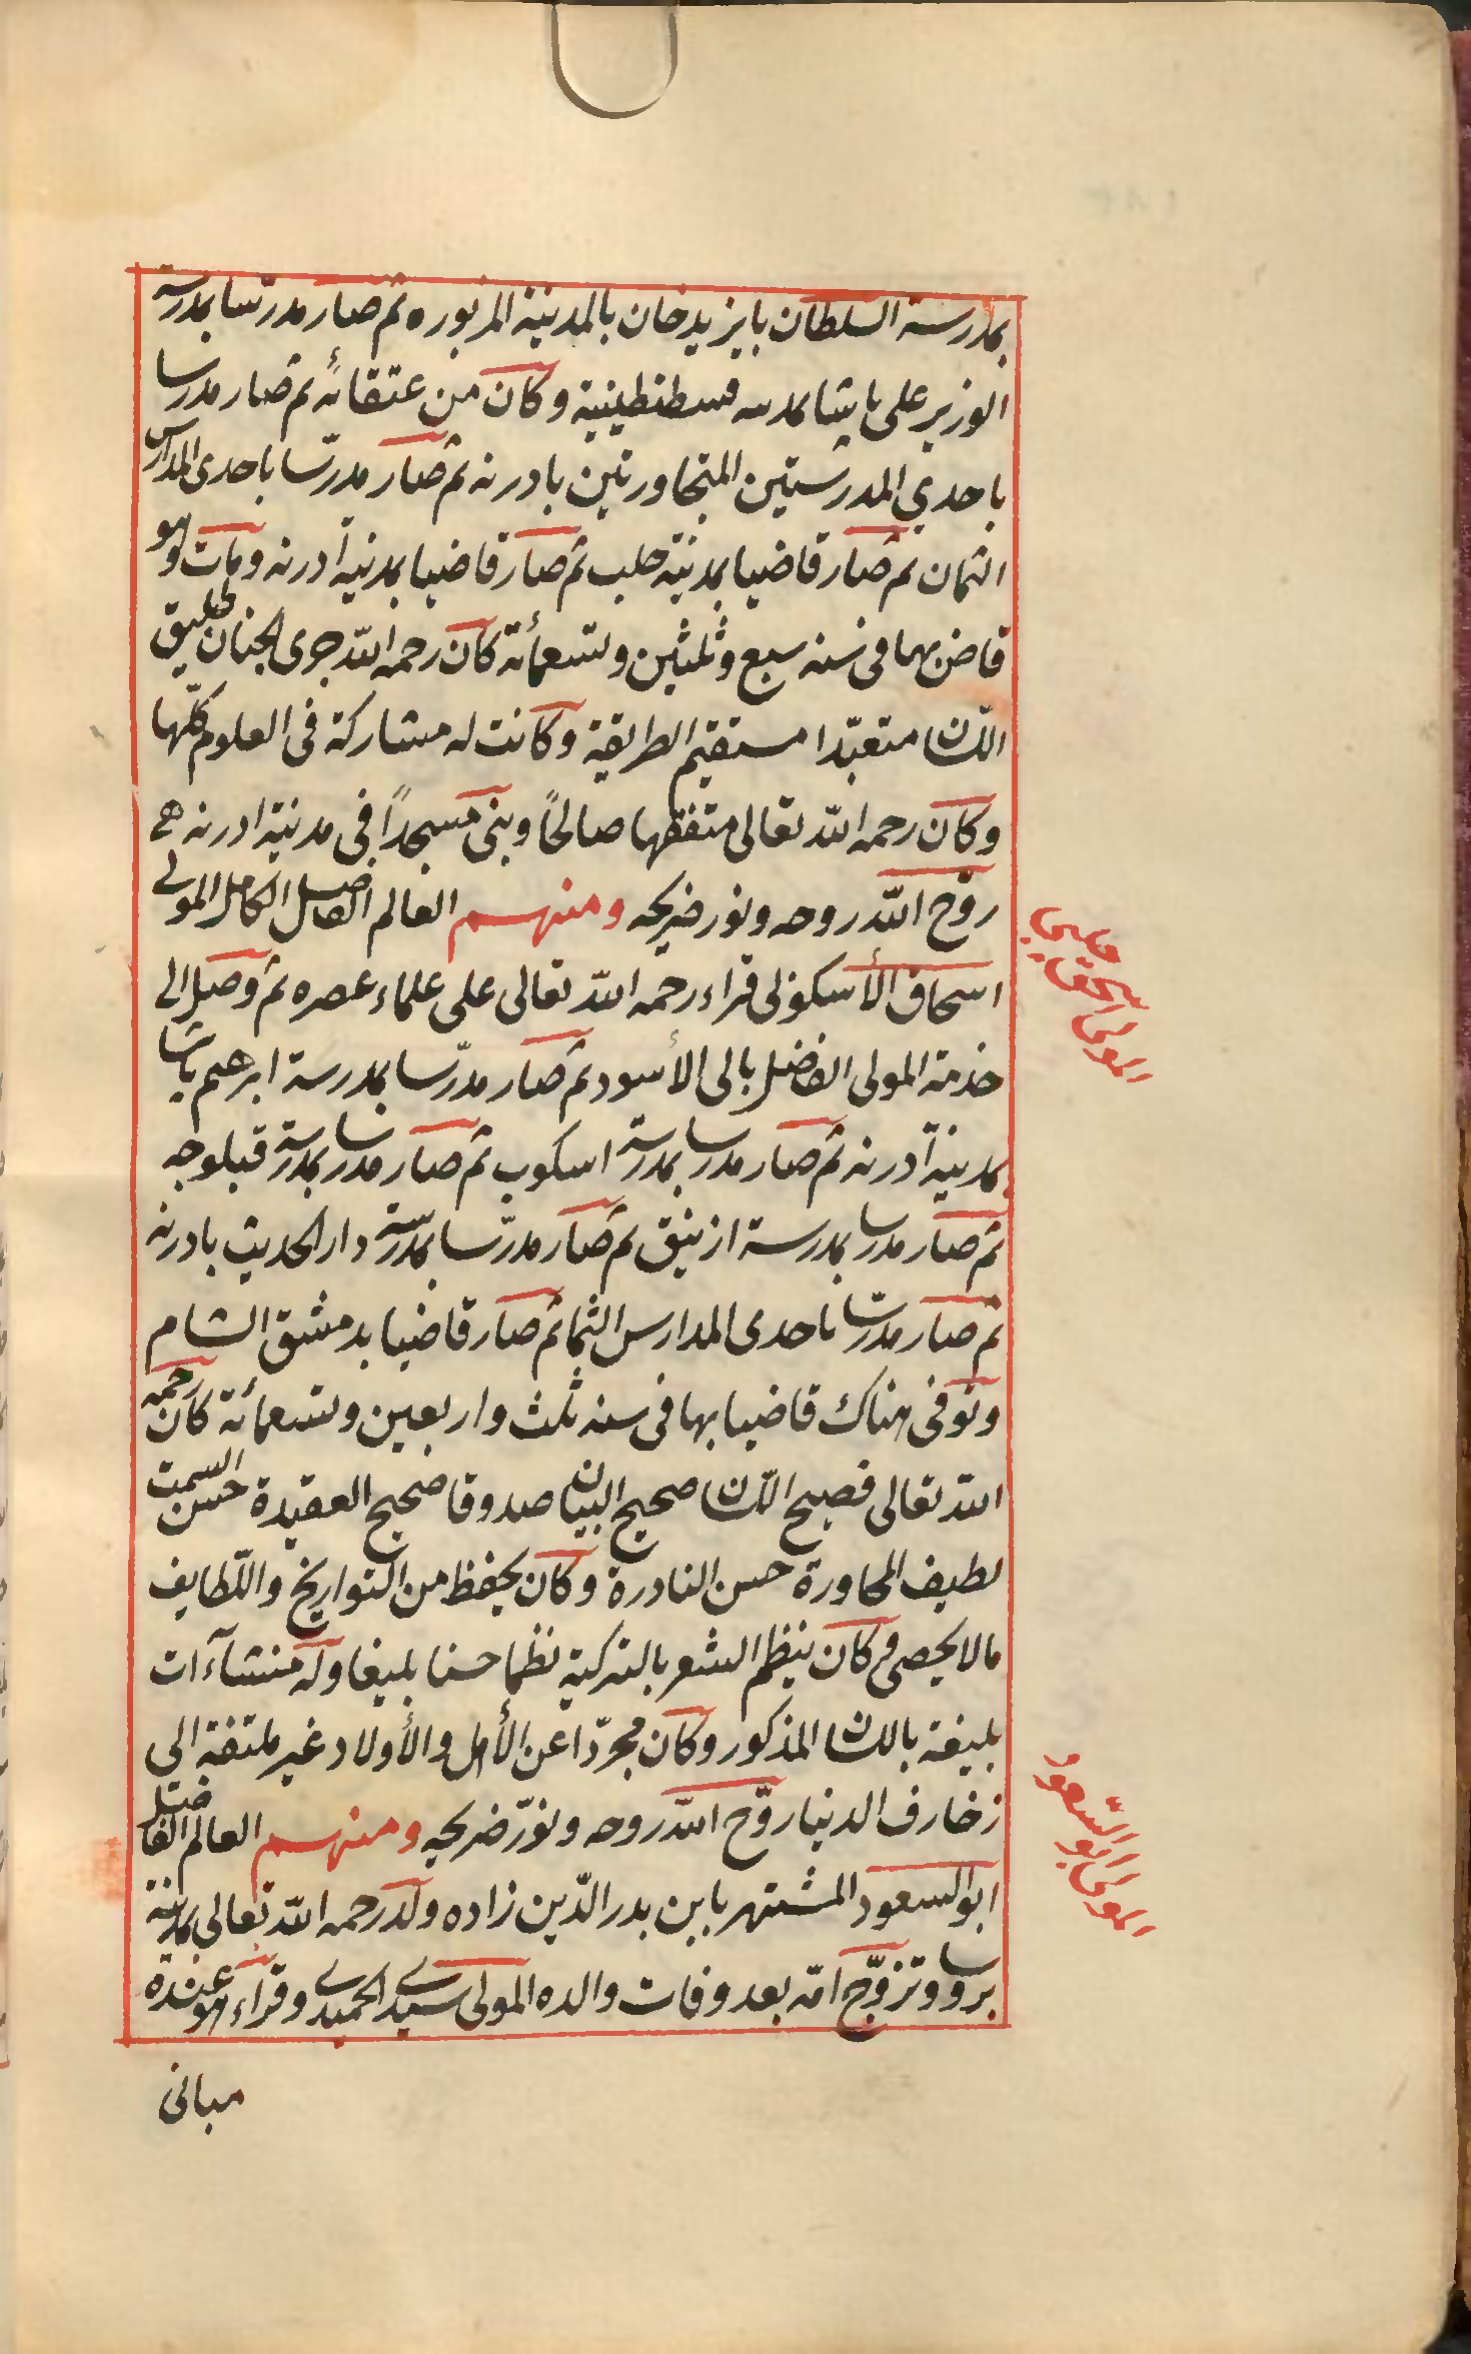 بمدرسة السلطان بايزيد خان بالمدينة المزبوره ثم صار مدرسا بمدرسة
الوزير على باشا بمدىىه قسطنطينية وكان من عتقائه ثم صار مدرسا
باحدي المدرستين المتجاورتين بادرنه ثم صار مدرسا باحدى المدارس
الثمان ثم صار قاضيا بمدينة حلب ثم صار قاضيا بمدينة أدرنه ومات وهو
قاض بهما فى سنه سبع وثلثين وتسعمائة كان رحمه الله جرى الجنان طليق
اللسان متعبّدا مستقيم الطريقة وكانت له مشاركة فى العلوم كلّها
وكان رحمه الله تعالى متفقها صالحًا وبنى مسجدًا فى مدينة ادرنه
روّح الله روحه ونور ضريحه ومنهم العالم الفاضل الكامل المولى
اسحاق الأسكوبى قراء رحمه الله تعالى على علماء عصره ثم وصل الى
خدمة المولى الفاضل بالى الأسود ثم صار مدرّسا بمدرسة ابرهيم پاشا
بمدينة أدرنه ثم صار مدرسا بمدرسة اسكوب ثم صار مدرسا بمدرسة قبلوجه
ثم صار مدرسا بمدرسة ازنيق ثم صار مدرّسا بمدرسة دار الحديث بادرنه
ثم صار مدرسا باحدى المدارس الثما ثم صار قاضيا بدمشق الشام
وتوفى هناك قاضيا بها فى سنه ثلث واربعين وتسعمائة كان رحمه
الله تعالى فصيح اللسان صحيح البيان صدوقا صحيح العقيدة حسن السمت
لطيف المحاورة حسن النادرة وكان يحفظ من التواريخ واللّطايف
مالا يحصى وكان ينظم الشعر بالتركية نظما حسنا بليغا وله منشآءات
بليغة باللسان المذكور وكان مجرّدا عن الأهل والأولاد غير ملتفة الى
زخارف الدنيا روّح الله روحه ونوّر ضريحه ومنهم العالم الفاضل
ابوالسعود المشتهر بابن بدر الدّين زاده ولد رحمه الله تعالى بمدينة
بروسا وتزوّج امّه بعد وفات والده المولى سيدي الحميدي وقراء هو عنده
مبانى
المولى اسحق چلبى
المولى ابو السّعود